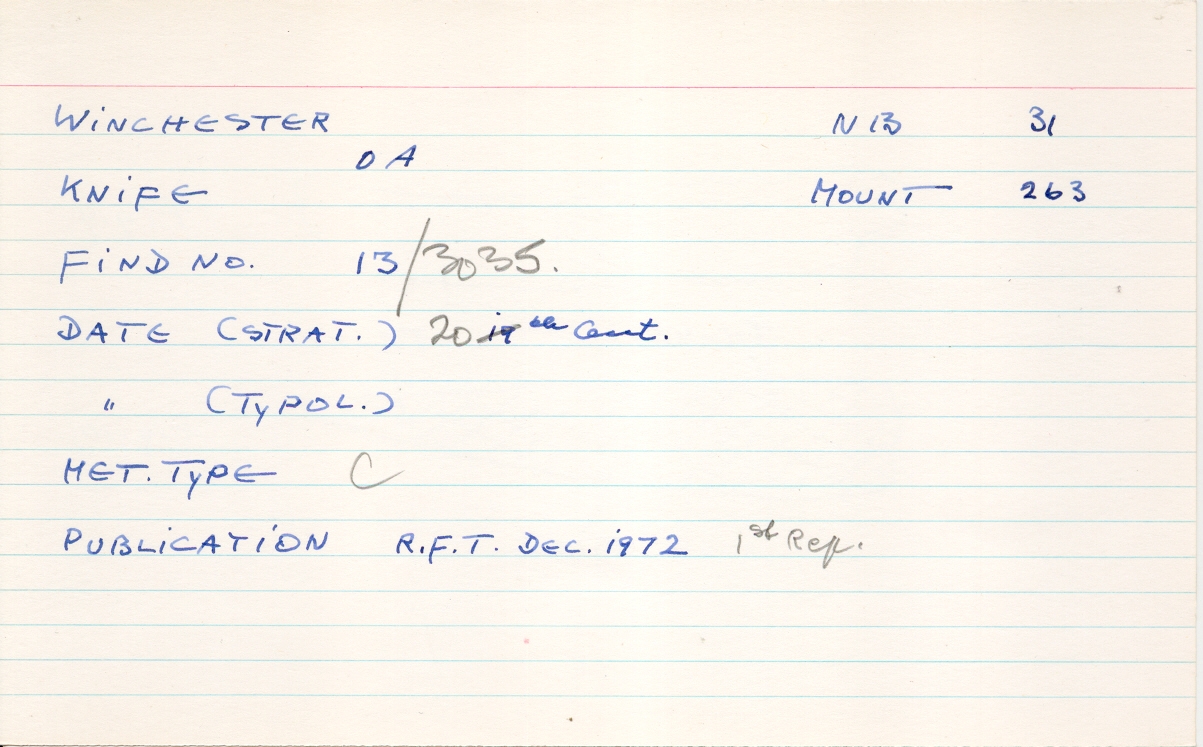 WINCHESTER N 13 31
O A
KNIFE MOUNT 263
FIND NO. 13/3035.
DATE (STRAT.) 20 19th Cent.
" (TYPOL.)
MET. TYPE C
PUBLICATION R.F.T. DEC. 1972 1st Rep.